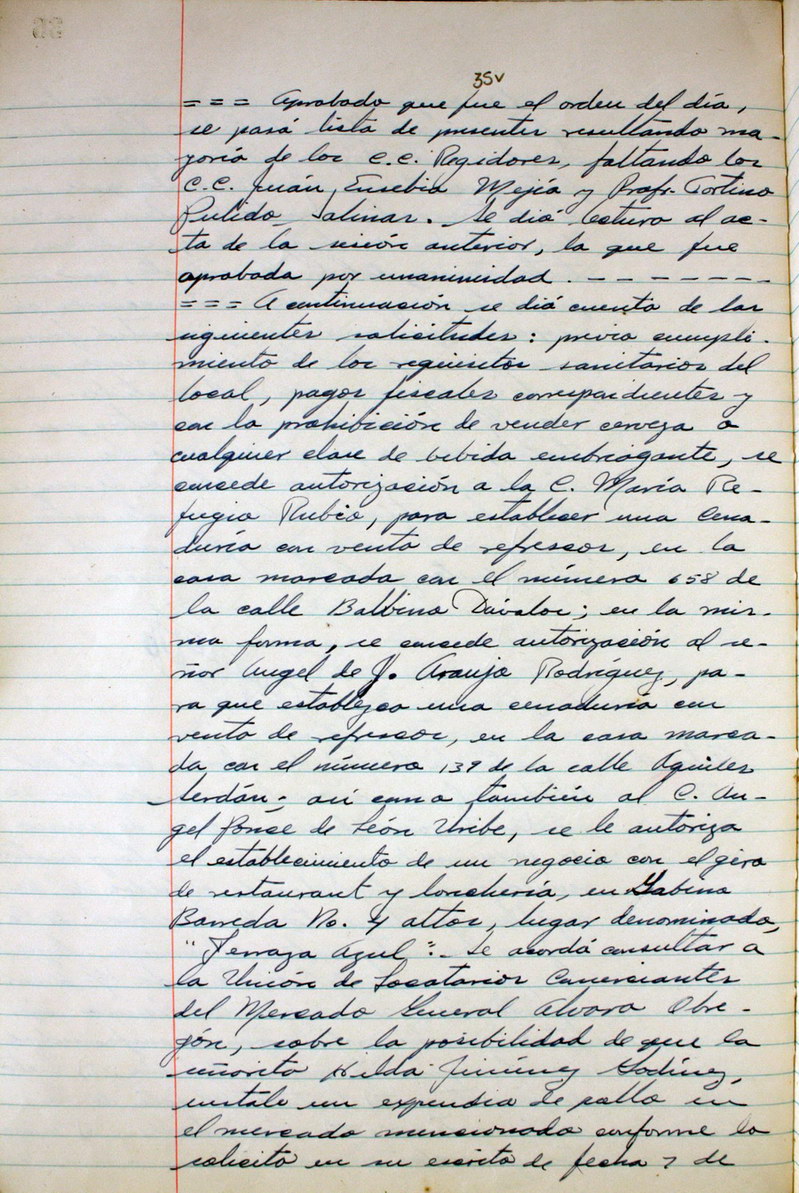 35v
= = = Aprobado que fue el orden del día,
se pasó lista de presentes resultando ma-
yoría de los C.C. Regidores, faltando los
C.C. Juán Eusebio Mejía y Profr. Tortino
Pulido Salinas. Se dió lectura al ac-
ta de la sesión anterior, la que fue
aprobada por unanimidad. - - - - - - -
= = = A continuación se dió cuenta de las
siguientes solicitudes: previo cumpli-
miento de los requisitos sanitarios del
local, pagos fiscales correspondientes y
con la prohibición de vender cerveza o
cualquier clase de bebida embriagante, se
concede autorización a la C. María Re-
fugio Rubio, para establecer una Cena-
duría con venta de refrescos, en la
casa marcada con el número 658 de
la calle Balbino Dávalos; en la mis-
ma forma, se concede autorización al se-
ñor Angel de J. Araujo Rodríguez, pa-
ra que establezca una cenaduría con
venta de refrescos, en la casa marca-
da con el número 139 de la calle Aquiles
Serdán; así como también al C. An-
gel Ponce de León Uribe, se le autoriza
el establecimiento de un negocio con el giro
de restaurant y lonchería, en Gabino
Barreda No. 4 altos, lugar denominado,
"Terraza Azul".- Se acordó consultar a
la Unión de Locatarios Comerciantes
del Mercado General Alvaro Obre-
gón, sobre la posibilidad de que la
señorita Hilda Jiménez Godínez,
instale un expendio de pollo en
el mercado mencionado conforme lo
solicita en su escrito de fecha 7 de